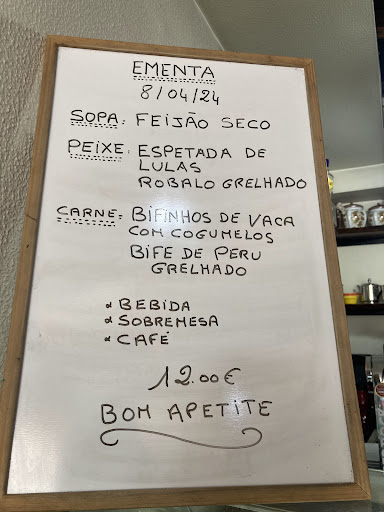 EMENTA
8/04/24
SOPA: FEIJÃO SECO
PEIXE: ESPETADA DE
LULAS
ROBALO GRELHADO
CARNE: BIFINHOS DE VACA
COM COGUMELOS
BIFE DE PERU
GRELHADO
* BEBIDA
* SOBREMESA
* CAFÉ
12.00€
BOM APETITE